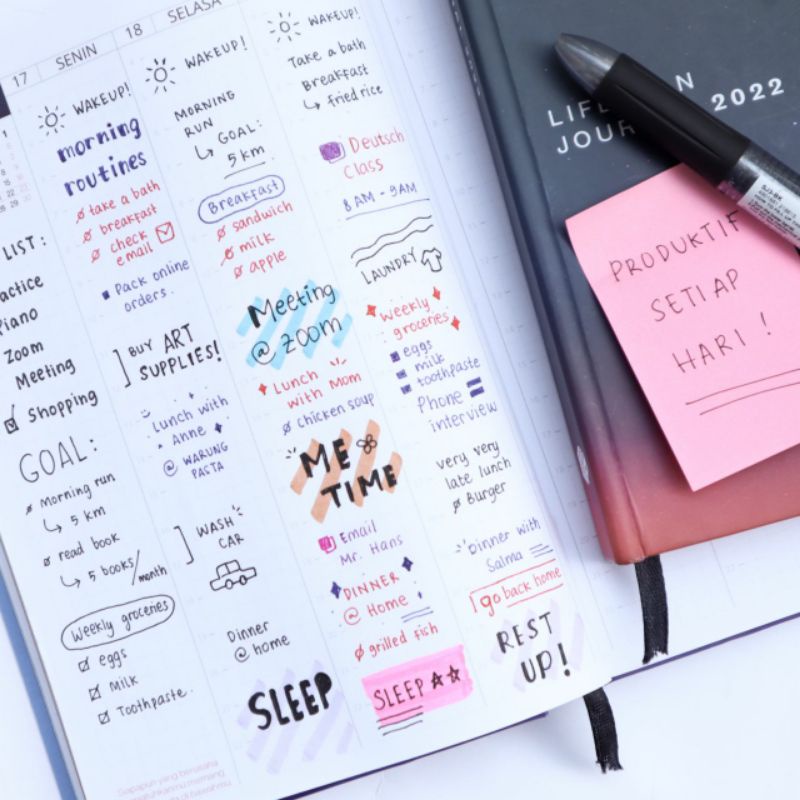 17
SENIN
18
SELASA
LIST:
Piano
Zoom
Meeting
Shopping
GOAL:
Morning run
5 km
read book
5 books/month
Weekly groceries
eggs
Milk
Toothpaste
WAKEUP!
morning
routines
take a bath
breakfast
check
email
Pack online
orders.
BUY ART
SUPPLIES!
Lunch with
Anne
@ WARUNG
PASTA
WASH
CAR
Dinner
@ home
SLEEP
WAKEUP!
MORNING
RUN
GOAL:
5 km
Breakfast
sandwich
milk
apple
Meeting
@ ZOOM
Lunch
with Mom
chicken soup
ME
TIME
Email
Mr. Hans
DINNER
@ Home
grilled fish
SLEEP
WAKEUP!
Take a bath
Breakfast
fried rice
Deutsch
Class
8 AM - 9AM
LAUNDRY
Weekly
groceries
eggs
milk
toothpaste
Phone
interview
very very
late lunch
Burger
Dinner with
Salma
go back home
REST
UP!
2022
PRODUKTIF
SETIAP
HARI!